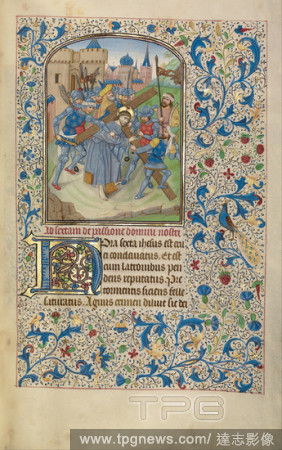 Ad sextam de passione domini nostri
Hora sexta ihesus est cru
ci conclavatus. Et est
cum latronibus pen
dens reputatus. Pre
tormentis siciens felle
saturatus. Agnus crimen diluit sic
TPG
www.tpgnews.com/達志影像